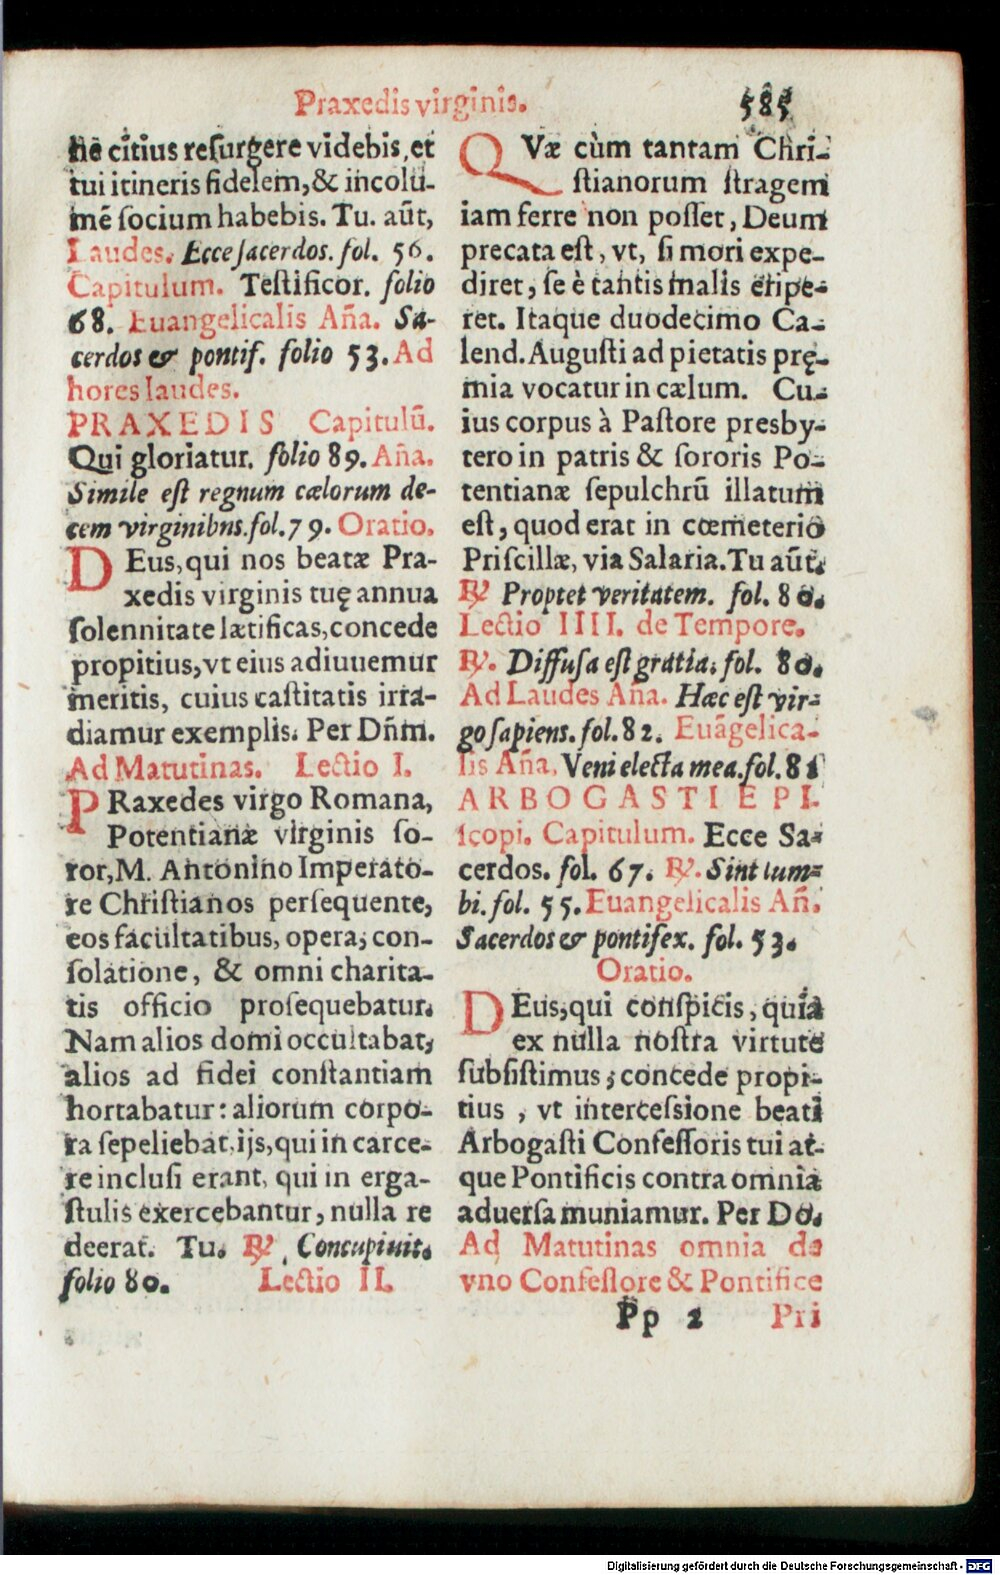 Praxedis virginis. 585
nē citius reſurgere videbis, et
tui itineris fidelem, & incolu-
mē ſocium habebis. Tu. aūt,
Laudes. Ecce ſacerdos. fol. 56.
Capitulum. Teſtificor. folio
68. Euangelicalis Aña. Sa-
cerdos & pontif. folio 53. Ad
hores laudes.
PRAXEDIS Capitulū.
Qui gloriatur. folio 89. Aña.
Simile eſt regnum cælorum de-
cem virginibns. fol. 79. Oratio.
DEus, qui nos beatæ Pra-
xedis virginis tuę annua
ſolennitate lætificas, concede
propitius, vt eius adiuuemur
meritis, cuius caſtitatis irra-
diamur exemplis. Per Dñm.
Ad Matutinas. Lectio I.
PRaxedes virgo Romana,
Potentianæ virginis ſo-
ror, M. Antonino Imperato-
re Chriſtianos perſequente,
eos facultatibus, opera, con-
ſolatione, & omni charita-
tis officio proſequebatur.
Nam alios domi occultabat,
alios ad fidei conſtantiam
hortabatur: aliorum corpo-
ra ſepeliebat, ijs, qui in carce-
re incluſi erant, qui in erga-
ſtulis exercebantur, nulla re
deerat. Tu. ℟ Concupiuit.
folio 80. Lectio II.
QVæ cùm tantam Chri-
ſtianorum ſtragem
iam ferre non poſſet, Deum
precata eſt, vt, ſi mori expe-
diret, ſe è tantis malis eripe-
ret. Itaque duodecimo Ca-
lend. Auguſti ad pietatis prę-
mia vocatur in cælum. Cu-
ius corpus à Paſtore presby-
tero in patris & ſororis Po-
tentianæ ſepulchrū illatum
eſt, quod erat in cœmeterio
Priſcillæ, via Salaria. Tu aūt.
℟ Proptet veritatem. fol. 80.
Lectio IIII. de Tempore.
℟. Diffuſa eſt gratia. fol. 80.
Ad Laudes Aña. Hæc eſt vir-
go ſapiens. fol. 82. Euāgelica-
lis Aña. Veni electa mea. fol. 81
ARBOGASTI EPI-
ſcopi. Capitulum. Ecce Sa-
cerdos. fol. 67. ℟. Sint lum-
bi. fol. 55. Euangelicalis Añ.
Sacerdos & pontifex. fol. 53.
Oratio.
DEus, qui conſpicis, quia
ex nulla noſtra virtute
ſubſiſtimus; concede propi-
tius, vt interceſsione beati
Arbogaſti Confeſſoris tui at-
que Pontificis contra omnia
aduerſa muniamur. Per Do.
Ad Matutinas omnia de
vno Confeſſore & Pontifice
Pp 2 Pri
Digitalisierung gefördert durch die Deutsche Forschungsgemeinschaft - DFG